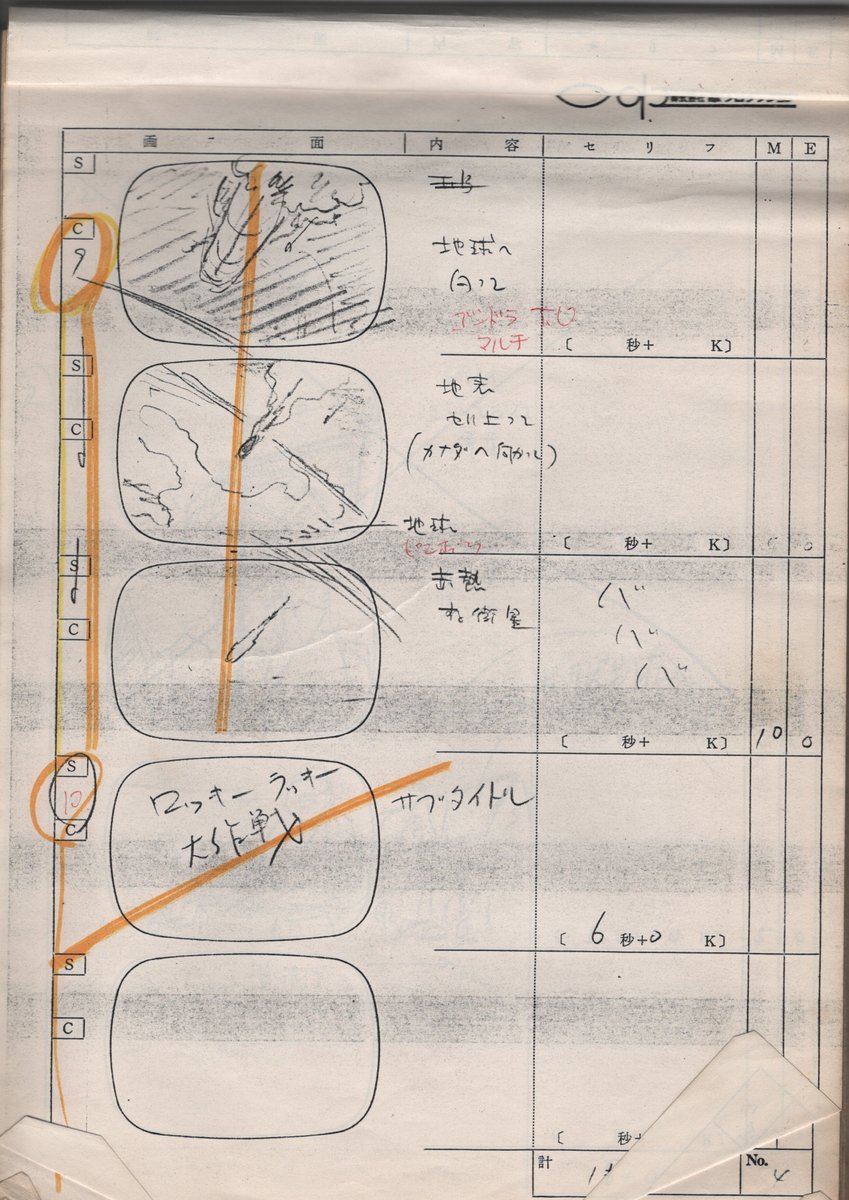 画 面 内 容 セ リ フ M E
S
C
9
地球へ
向って
ゴンドラ なし
マルチ
〔 秒+ K〕
S
C
地表
セリ上って
(カナダへ向かって)
地球
〔 秒+ K〕
S
C
赤熱
する衛星
バ
バ
バ
〔 秒+ K〕 10 0
S
10
C
ロッキーラッキー
大作戦
サブタイトル
〔 6 秒+0 K〕
S
C
〔 秒+
計
No. 4